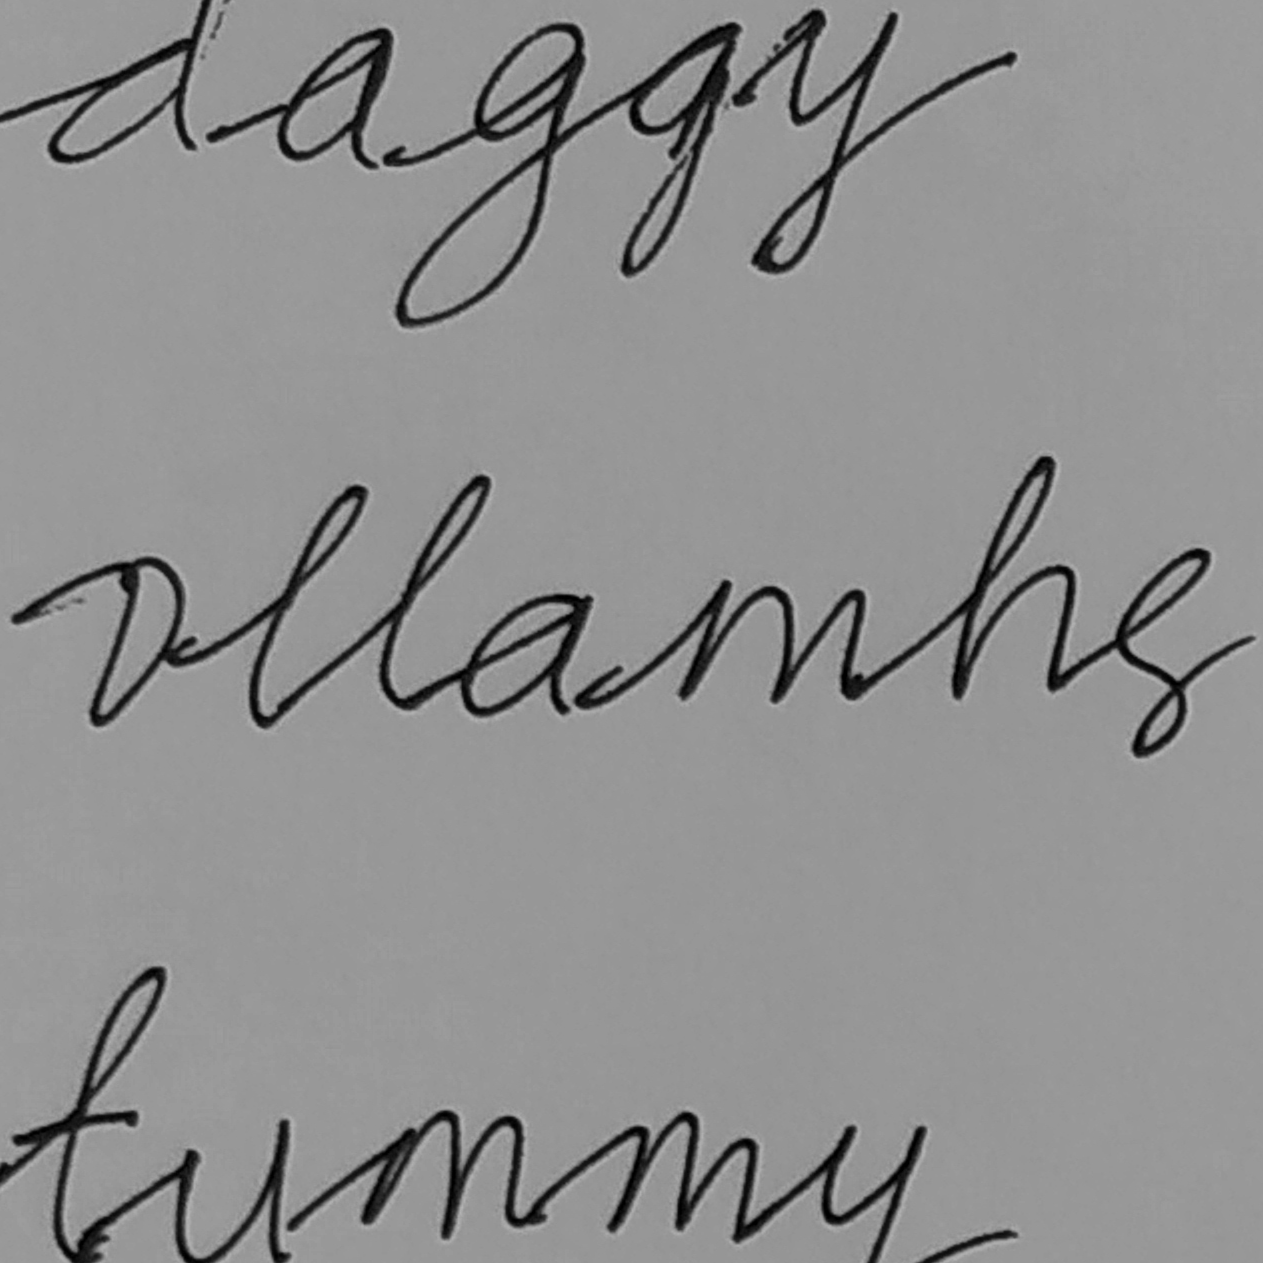 daggy
ollamhs
tummy